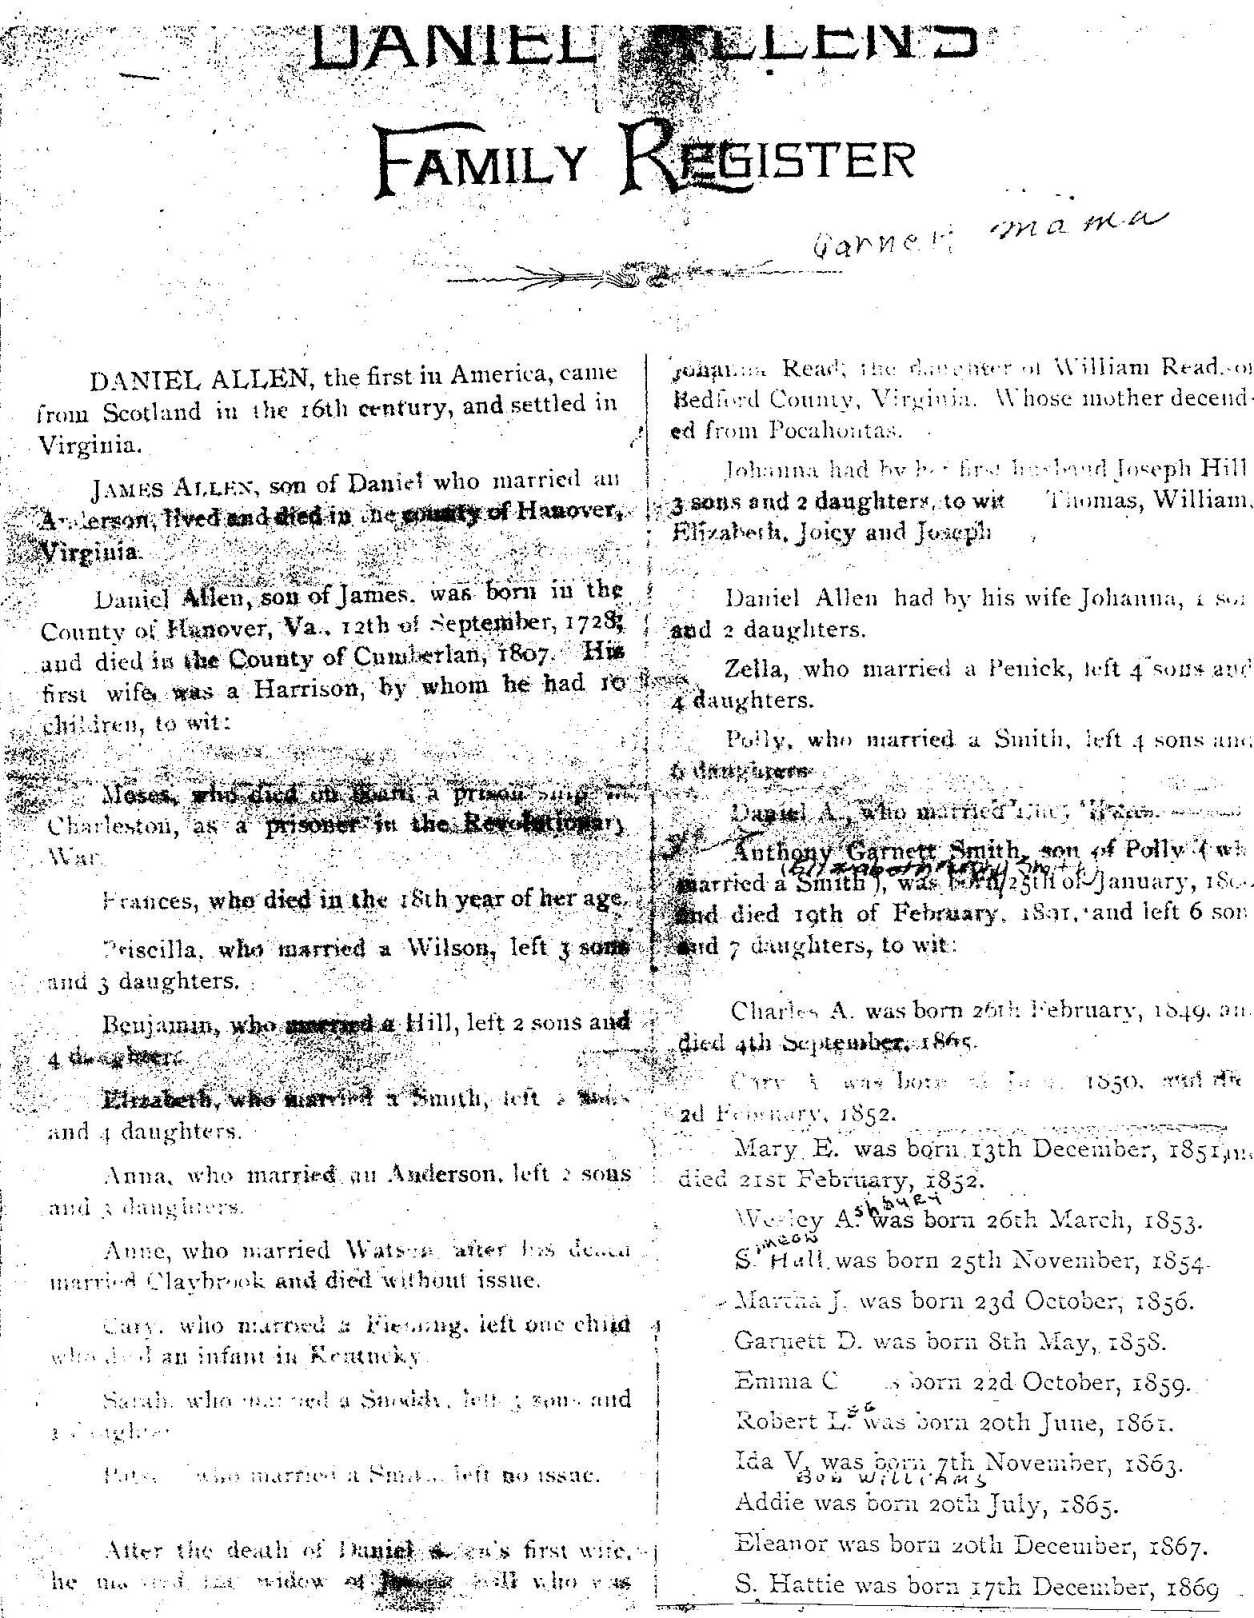 DANIEL ALLEN'S
FAMILY REGISTER
Garnett mama
DANIEL ALLEN, the first in America, came
from Scotland in the 16th century, and settled in
Virginia.
JAMES ALLEN, son of Daniel who married an
Anderson, lived and died in the county of Hanover,
Virginia.
Daniel Allen, son of James, was born in the
County of Hanover, Va., 12th of September, 1728;
and died in the County of Cumberlan, 1807. His
first wife, was a Harrison, by whom he had 10
children, to wit:
Moses, who died on board a prison ship in
Charleston, as a prisoner in the Revolutionary
War.
Frances, who died in the 18th year of her age.
Priscilla, who married a Wilson, left 3 sons
and 3 daughters.
Benjamin, who married a Hill, left 2 sons and
4 daughters.
Elizabeth, who married a Smith, left sons
and 4 daughters.
Anna, who married an Anderson, left 2 sons
and 3 daughters.
Anne, who married Watson, after his death
married Claybrook and died without issue.
Cary, who married a Fleming, left one child
who died an infant in Kentucky.
Sarah, who married a Smoddy, left 3 sons and
daughter
who married a Smith, left no issue.
After the death of Daniel Allen's first wife,
he married the widow of Joseph Hill who was
Johanna Read, the daughter of William Read, of
Bedford County, Virginia. Whose mother decend-
ed from Pocahontas.
Johanna had by her first husband Joseph Hill
3 sons and 2 daughters, to wit Thomas, William,
Elizabeth, Joicy and Joseph
Daniel Allen had by his wife Johanna, 1 son
and 2 daughters.
Zella, who married a Penick, left 4 sons and
4 daughters.
Polly, who married a Smith, left 4 sons and
6 daughters
Daniel A., who married Lucy
Anthony Garnett Smith, son of Polly ( who
(Elizabeth Smith
married a Smith ), was born 25th of January,
and died 19th of February, 1891, and left 6 sons
and 7 daughters, to wit:
Charles A. was born 26th February, 1849, and
died 4th September, 1865.
Cary A was born 1850, and died
2d February, 1852.
Mary E. was born 13th December, 1851, and
died 21st February, 1852.
shbury
Wesley A. was born 26th March, 1853.
imeon
S. Hall was born 25th November, 1854.
Martha J. was born 23d October, 1856.
Garnett D. was born 8th May, 1858.
Emma C born 22d October, 1859.
Robert L. was born 20th June, 1861.
Ida V. was born 7th November, 1863.
Bob Williams
Addie was born 20th July, 1865.
Eleanor was born 20th December, 1867.
S. Hattie was born 17th December, 1869